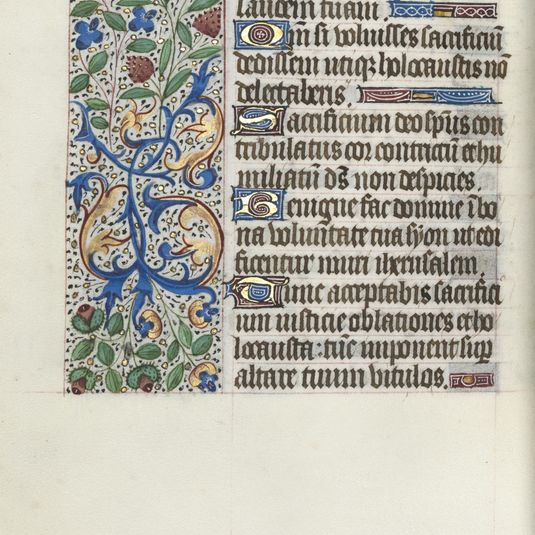 laudem tuam.
Qm̄ si voluisses sacrificiū
dedissem utiqȝ holocaustis nō
delectaberis.
Sacrificium deo sp̄us con
tribulatus cor contrictū et hu
miliatū ds̄ non despicies.
Benigne fac domine ī bo
na voluntate tua syon ut edi
ficentur muri iherusalem
Tunc acceptabis sacrifici
um iusticie oblationes et ho
locausta: tūc imponent sup̄
altare tuum vitulos.